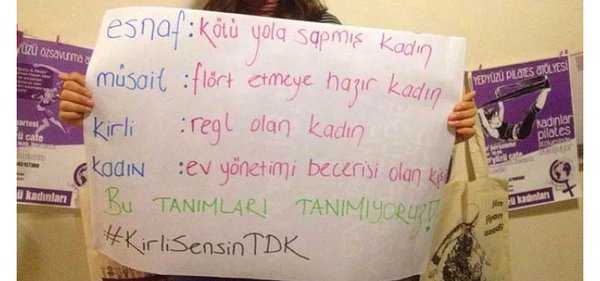 esnaf : kötü yola sapmış kadın
müsait : flört etmeye hazır kadın
kirli : regl olan kadın
kadın : ev yönetimi becerisi olan
Bu TANIMLARI TANIMIYORUZ!
#KirliSensinTDK
yüzü özsavunma
YERYÜZÜ PİLATES ATÖLYESİ
kadınlar
pilates
di kadınları
jin
jiyan
azadi